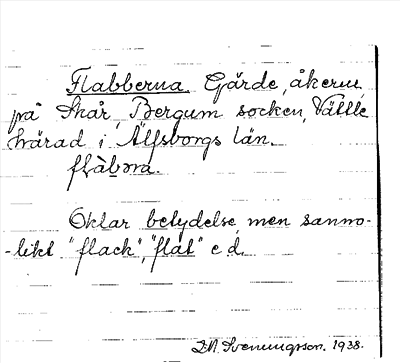 Flabberna Gärde, åkerm.
på Skår, Bergum socken, Vättle
härad i Älfsborgs län.
flàbəɹa.
Oklar betydelse, men sanno-
-likt "flack", "flat" e d.
D.A. Svenningsson. 1938.